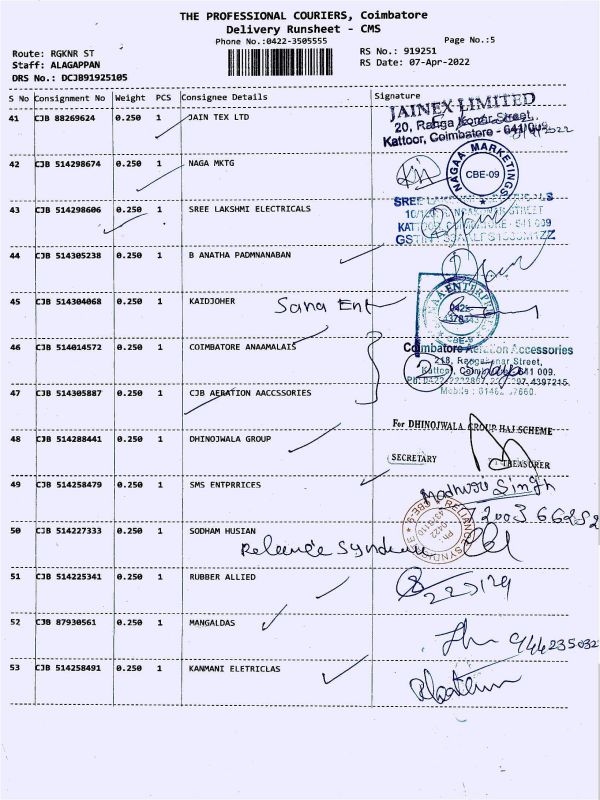 THE PROFESSIONAL COURIERS, Coimbatore
Delivery Runsheet - CMS
Phone No.:0422-3505555
Page No.:5
Route: RGKNR ST
RS No.: 919251
Staff: ALAGAPPAN
RS Date: 07-Apr-2022
DRS No.: DCJB91925105
S No Consignment No Weight PCS Consignee Details Signature
41 CJB 88269624 0.250 1 JAIN TEX LTD
JAINEX LIMITED
20, Ranga Konar Street,
Kattoor, Coimbatore - 641 009
42 CJB 514298674 0.250 1 NAGA MKTG
NAGAA MARKETINGS
CBE-09
43 CJB 514298606 0.250 1 SREE LAKSHMI ELECTRICALS
SREE
44 CJB 514305238 0.250 1 B ANATHA PADMNANABAN
45 CJB 514304068 0.250 1 KAIDJOHER
Sana Ent
CBE-9
46 CJB 514014572 0.250 1 COIMBATORE ANAAMALAIS
Coimbatore Aeration Accessories
218, Rangakonar Street,
Kattoor, Coimbatore 641 009.
47 CJB 514305887 0.250 1 CJB AERATION AACCSSORIES
48 CJB 514288441 0.250 1 DHINOJWALA GROUP
For DHINOJWALA GROUP HAJ SCHEME
SECRETARY TREASURER
49 CJB 514258479 0.250 1 SMS ENTPRRICES
Madhuri Singh
50 CJB 514227333 0.250 1 SODHAM HUSIAN
RELIANCE SYNDICATE
CBE-9
51 CJB 514225341 0.250 1 RUBBER ALLIED
52 CJB 87930561 0.250 1 MANGALDAS
944235032
53 CJB 514258491 0.250 1 KANMANI ELETRICLAS